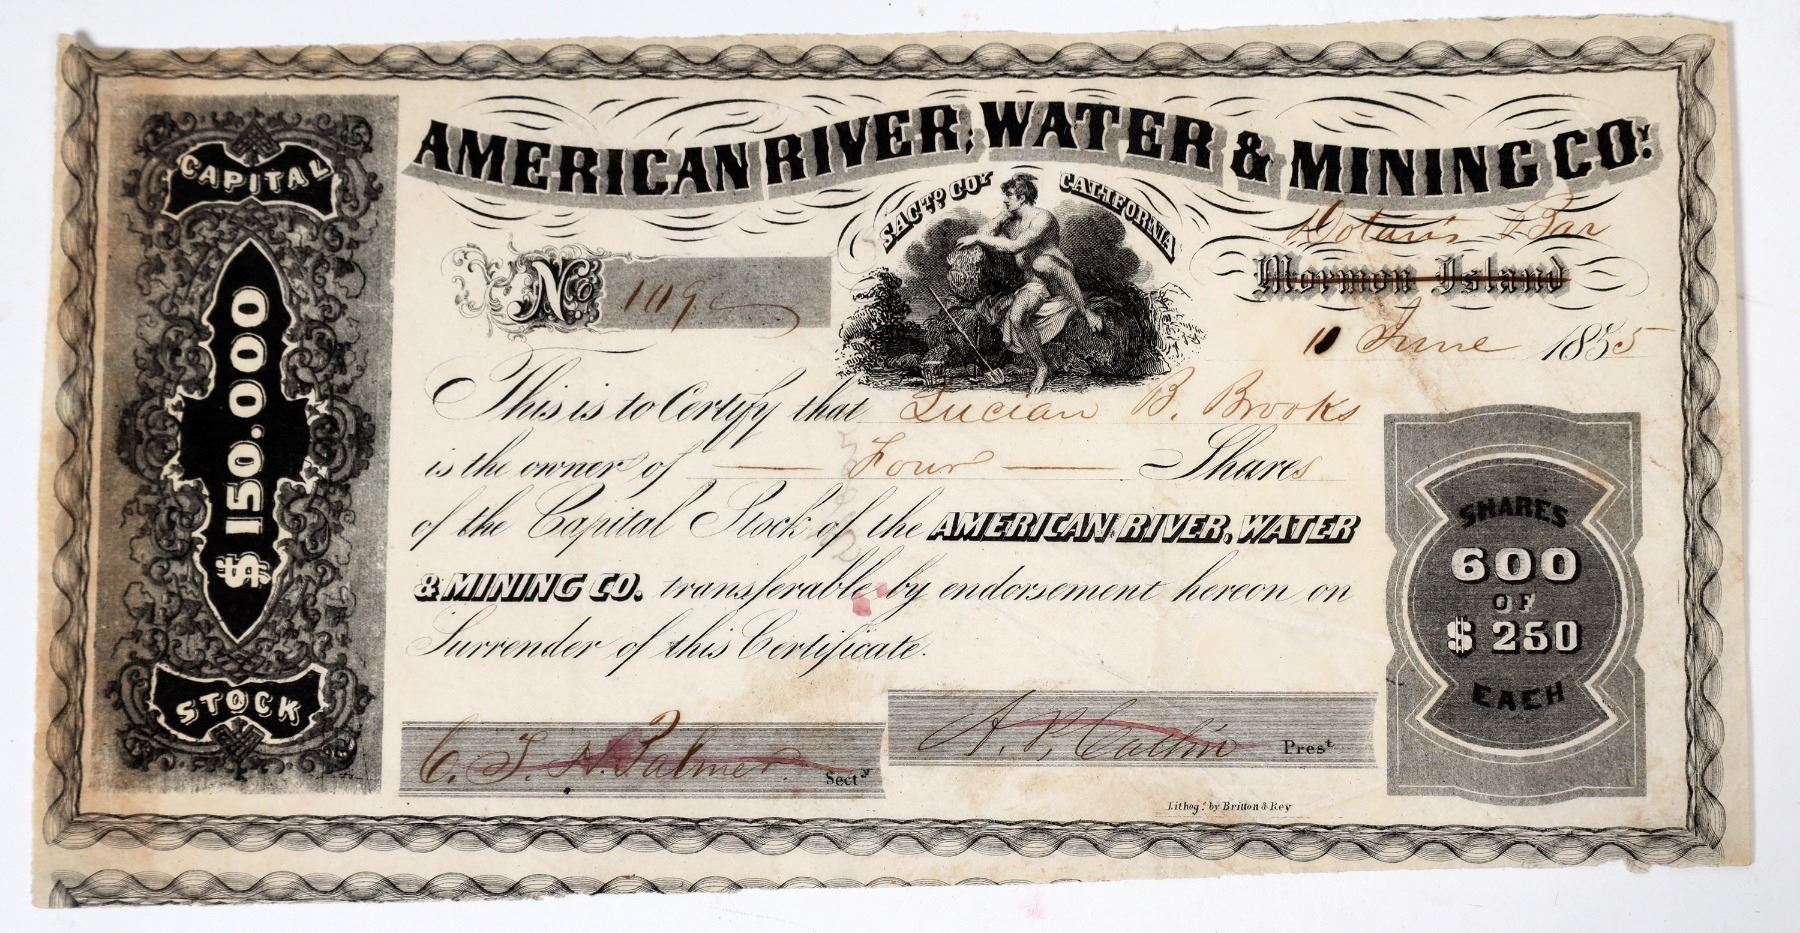 CAPITAL
$ 150.000
STOCK
AMERICAN RIVER, WATER & MINING COY.
SACTO COY CALIFORNIA
No. 109
Dotan's Bar
Mormon Island
11 June 1855
This is to Certify that Lucian B. Brooks
is the owner of Four Shares
of the Capital Stock of the AMERICAN RIVER, WATER
& MINING CO. transferable by endorsement hereon on
Surrender of this Certificate.
SHARES
600
OF
$ 250
EACH
Palmer Secty
A. P. Catlin Prest
Lithog. by Britton & Rey